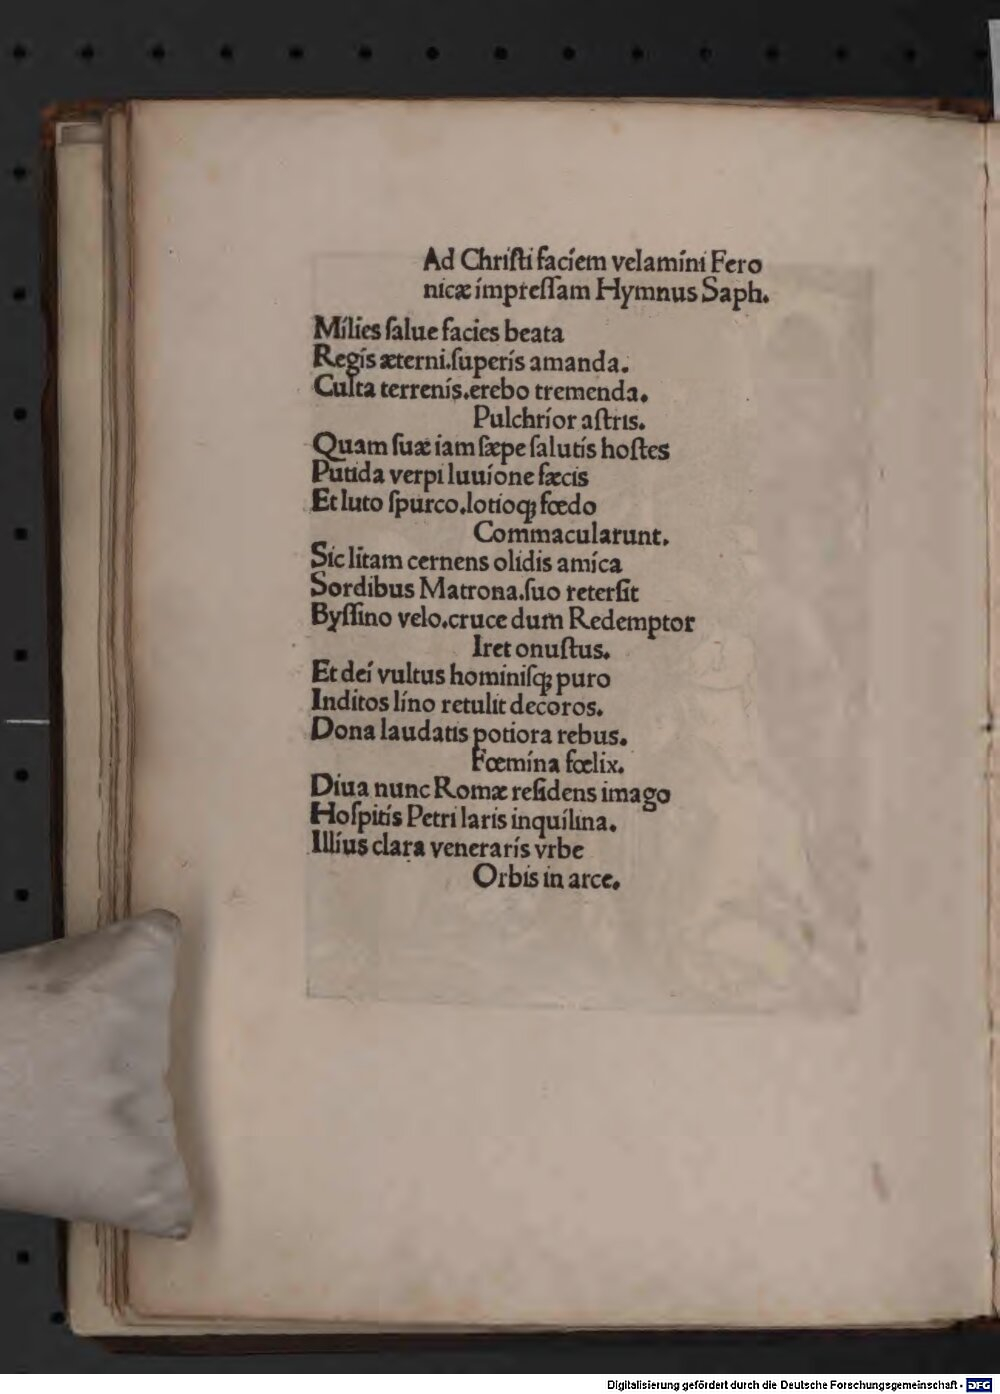 Ad Chriſti faciem velamini Fero
nicæ impreſſam Hymnus Saph.
Milies ſalue facies beata
Regis æterni.ſuperis amanda.
Culta terrenis.erebo tremenda.
Pulchrior aſtris.
Quam ſuæ iam ſæpe ſalutis hoſtes
Putida verpi luuione fæcis
Et luto ſpurco.lotioqꝫ fœdo
Commacularunt.
Sic litam cernens olidis amica
Sordibus Matrona.ſuo reterſit
Byſſino velo.cruce dum Redemptor
Iret onuſtus.
Et dei vultus hominiſqꝫ puro
Inditos lino retulit decoros.
Dona laudatis potiora rebus.
Fœmina fœlix.
Diua nunc Romæ reſidens imago
Hoſpitis Petri laris inquilina.
Illius clara veneraris vrbe
Orbis in arce.
Digitalisierung gefördert durch die Deutsche Forschungsgemeinschaft - DFG